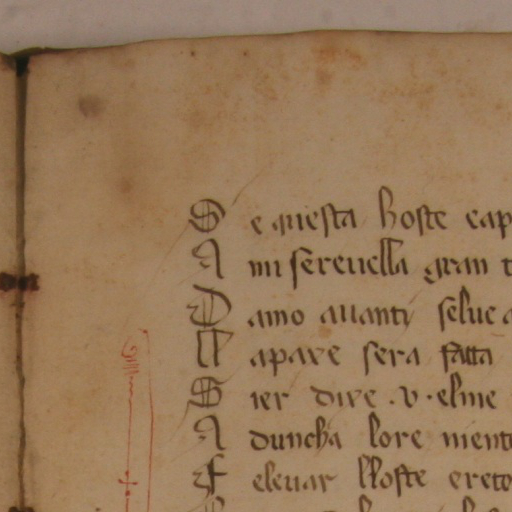 S e questa hoste eap
A mi sereuella gran t
D amo auanti selue a
U apare sera fatta
S ier dire .v. elme
A duncha lore ment
F eleuar lloste ereto